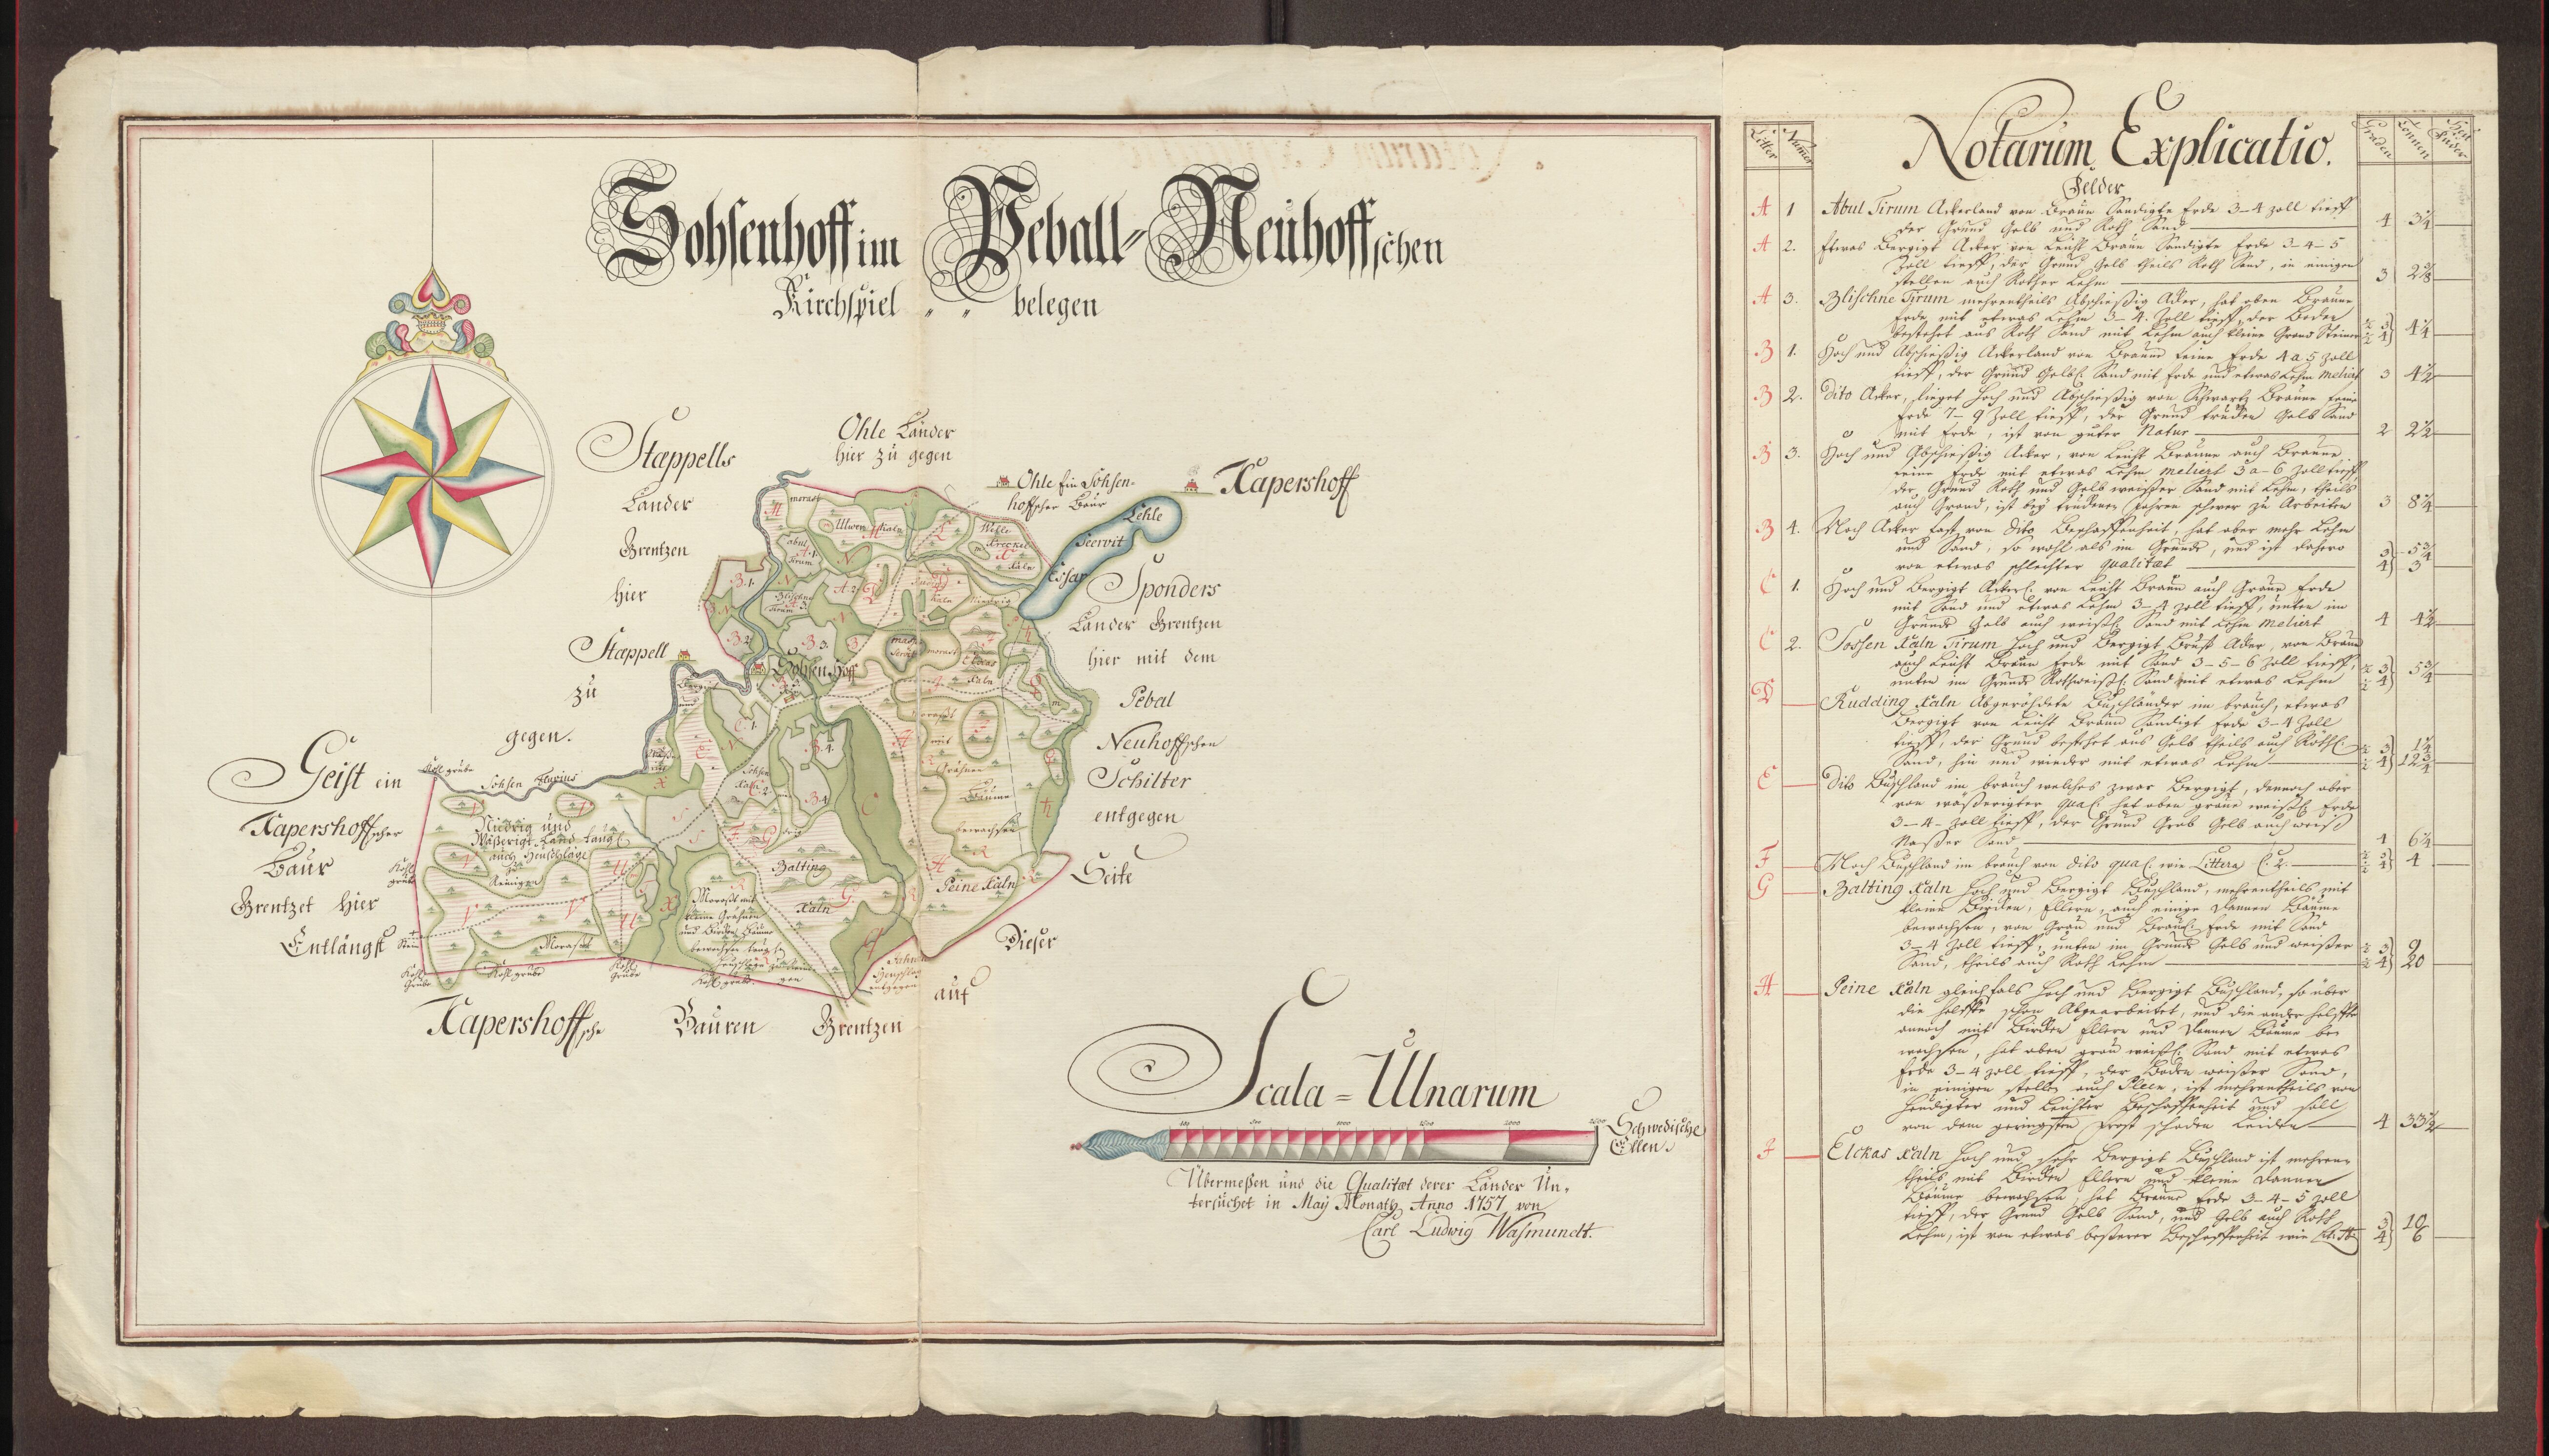 Sohsenhoff im Peball-Neuhoffschen
Kirchspiel " " belegen
Stæppells
Länder
Grentzen
hier
Stæppell
zü
gegen.
Ohle Länder
hier zü gegen
Ohle Ein Sohsen-
hoffscher Baür
Kapershoff
Lehle
Seervit
Essar
Sponders
Länder Grentzen
hier mit dem
Pebal
Neuhoffschen
Schilter
entgegen
Seite
Dieser
auf
Geist ein
Kapershoffscher
Baür
Grentzet hier
Entlängst
Kapershoffsche Bauren Grentzen
morast
M
Ulwen Kaln
Abul
Tirum
A.1.
Blischne
Tirum
A.3.
A.2.
B.1.
B.2.
B.3.
Sohsen Hoff
Elckas
Kaln
C.1.
B.4.
Sohsen Fluvius
Kohl grübe
Niedrig und
Wäßerigt Land taugl.
auch Heuschläge
zu
Reinigen
Balting
Kaln
G.
Peine Kaln
Morast
Morast mit
kleine Grähnen
und Bircken Bäume
bewachsen
Grähnen
Bäume
bewachsen
Scala=Ulnarum
500 1000 1500 2000
Schwedische
Ellen.
Übermeßen und die Qualitæt derer Länder Un,
tersüchet in Maÿ Monath Anno 1757 von
Carl Ludwig Wasmundt.
Litter Numer Notarum Explicatio. Graden Tonnen
Felder
A 1 Abul Tirum Ackerland von Braun Sandigte Erde 3-4 zoll tieff
der Grund Gelb und Roth Sand 4 3¼
A 2. Etwas Bergigt Acker von Leicht Braun Sandigte Erde 3-4-5
Zoll tieff, der Grund Gelb theils Roth Sand, in einigen
stellen auch Rother Lehm 3
A 3. Blischne Tirum mehrentheils Abschießig Acker, hat oben Braune
Erde mit etwas Lehm 3-4. Zoll tieff, der Boden
bestehet aus Roth Sand mit Lehm auch kleine Grand Steine ½ 3 ½ 4 4¼
B 1. Hoch und Abschießig Ackerland von Braune feine Erde 4 a 5 zoll
tieff, der Grund Gelbl. Sand mit Erde und etwas Lehm melirt 3 4½
B 2. Dito Acker, lieget hoch und Abschießig von Schwartz Braune feine
Erde 7-9 Zoll tieff, der Grund Gelb Sand
mit Erde, ist von guter Natur 2 2½
B 3. Hoch und Abschießig Acker, von Leicht Braune auch Braune
feine Erde mit etwas Lehm meliert 3 a-6 Zoll tieff,
der Grund Roth und Gelb weißer Sand mit Lehm, theils
auch Grand, ist beÿ Jahren schwer zu Arbeiten 3 8¼
B 4. Noch Acker fast von dito Beschaffenheit, hat aber mehr Lehm
und Sand, so wohl als im Grunde, und ist dahero
von etwas schlechter qualitæt 3 4 5¾ 3
C 1. Hoch und Bergigt Ackerl. von Leicht Braun auch Graue Erde
mit Sand und etwas Lehm 3-4 zoll tieff, unten im
Grunde Gelb auch weißl. Sand mit Lehm meliert 4 4½
C 2. Sossen Kaln Tirum hoch und Bergigt Brust Acker, von Braun
auch Leicht Braun Erde mit Sand 3-5-6 Zoll tieff,
unten im Grunde Rothweißl. Sand mit etwas Lehm ½ 3 ½ 4 5¾
D Rudding Kaln Abgeröhdete Buschländer im brauch, etwas
Bergigt von Leicht Braun Sandigt Erde 3-4 Zoll
tieff, der Grund bestehet aus Gelb theils auch Röthl.
Sand, hin und wieder mit etwas Lehm 3 4 12¾
E Dito Buschland im brauch welches zwar Bergigt, dennoch aber
von waßerigter qual. hat oben graue weißl. Erde
3-4- Zoll tieff, der Grund Grob Gelb auch weiß
Naßer Sand 4 6¼
F Noch Buschland im brauch von dito qual. wie Littera C. 2. 4
G Balting Kaln hoch und Bergigt Buschland, mehrentheils mit
kleine Bircken, Ellern, auch einige Dannen Bäume
bewachsen, von Grau und Braunl. Erde mit Sand
3-4 Zoll tieff, unten im Grunde Gelb und weißer
Sand, theils auch Roth Lehm ½ 3 ½ 4 9 20
H Peine Kaln gleichfals hoch und Bergigt Buschland, so über
die helffte schon Abgearbeitet, und die ander helffte
annoch mit Bircken Ellern und Dannen Bäume be
wachsen, hat oben grau weißl. Sand mit etwas
Erde 3-4 zoll tieff, der Boden weißer Sand,
in einigen stellen auch Kleen, ist mehrentheils von
und Leichter Beschaffenheit und soll
von dem geringsten Frost schaden Leiden 4 33½
J Elckas Kaln hoch und sehr Bergigt Buschland ist mehren-
theils mit Bircken Ellern und kleine Dannen
Bäume bewachsen, hat Braune Erde 3-4-5 zoll
tieff, der Grund Gelb Sand, und Gelb auch Roth
Lehm, ist von etwas beßerer Beschaffenheit wie Litt. H 3 4 10 6